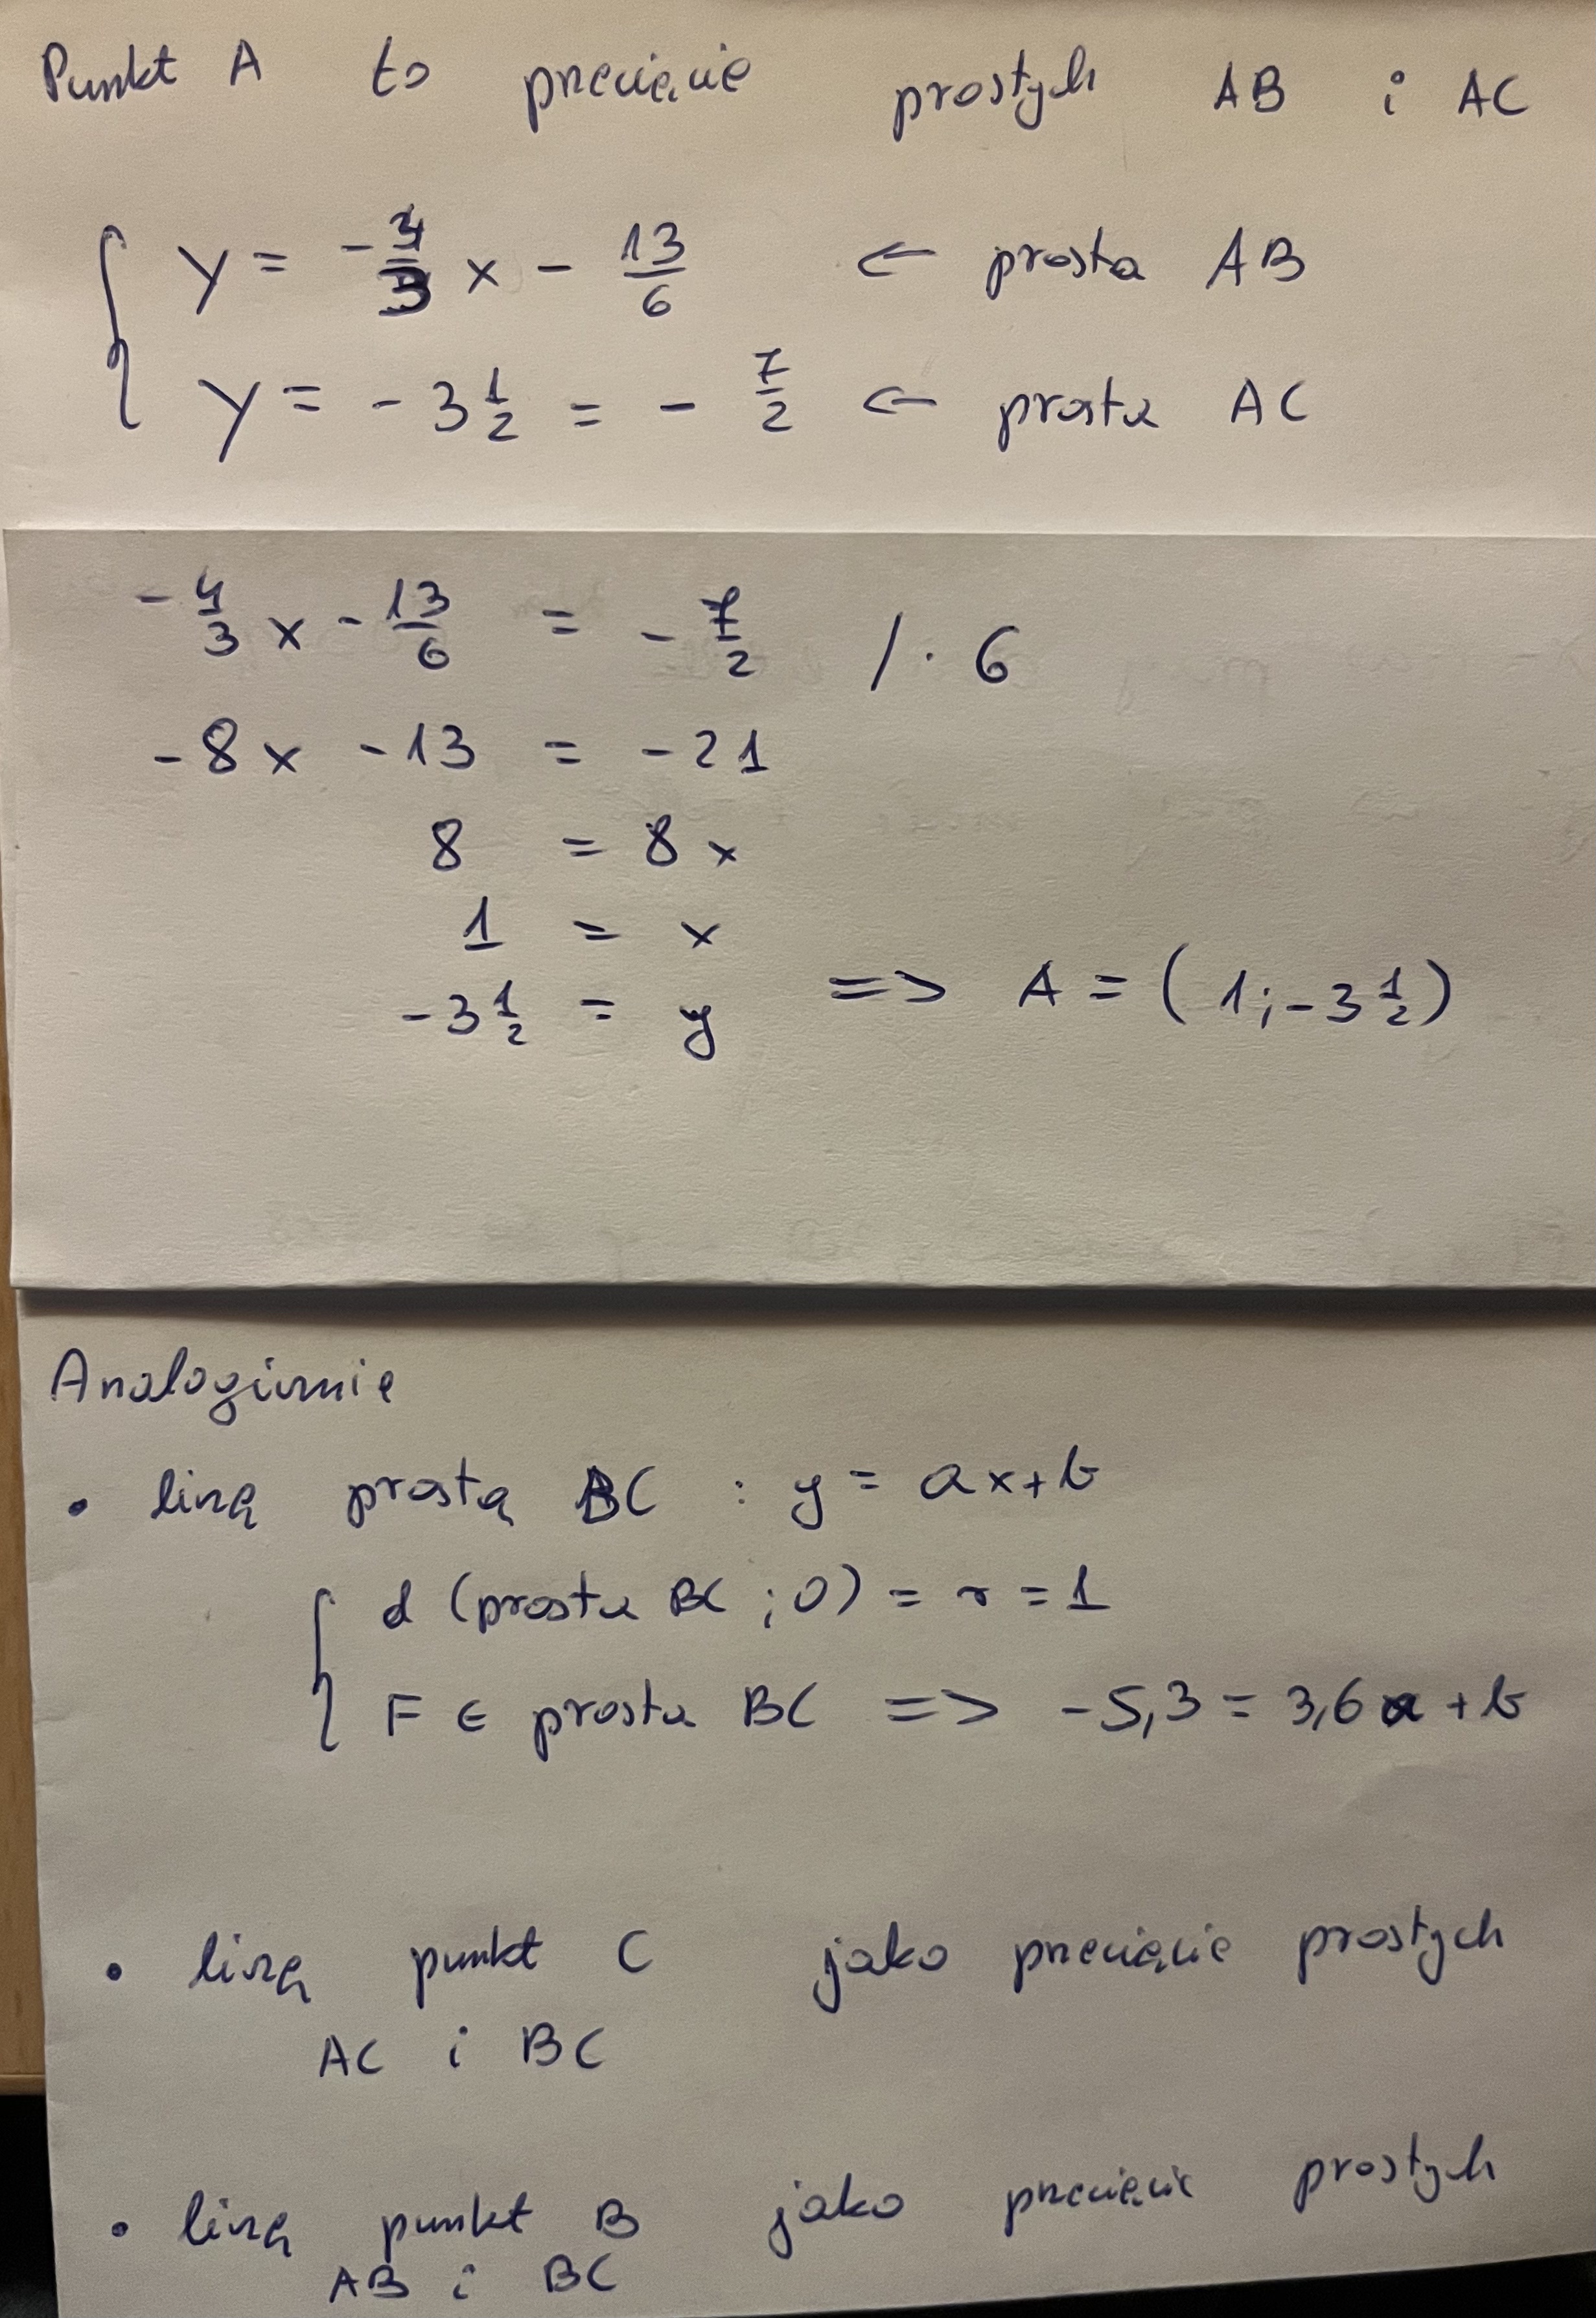 Punkt A to przecięcie prostych AB i AC
y = -4/3 x - 13/6 ← prosta AB
y = -3 1/2 = -7/2 ← prosta AC
-4/3 x - 13/6 = -7/2 / · 6
-8x -13 = -21
8 = 8x
1 = x
-3 1/2 = y => A = (1; -3 1/2)
Analogicznie
• liczę prostą BC : y = ax+b
d (prosta BC ; O) = r = 1
F ∈ prosta BC => -5,3 = 3,6a + b
• liczę punkt C jako przecięcie prostych
AC i BC
• liczę punkt B jako przecięcie prostych
AB i BC